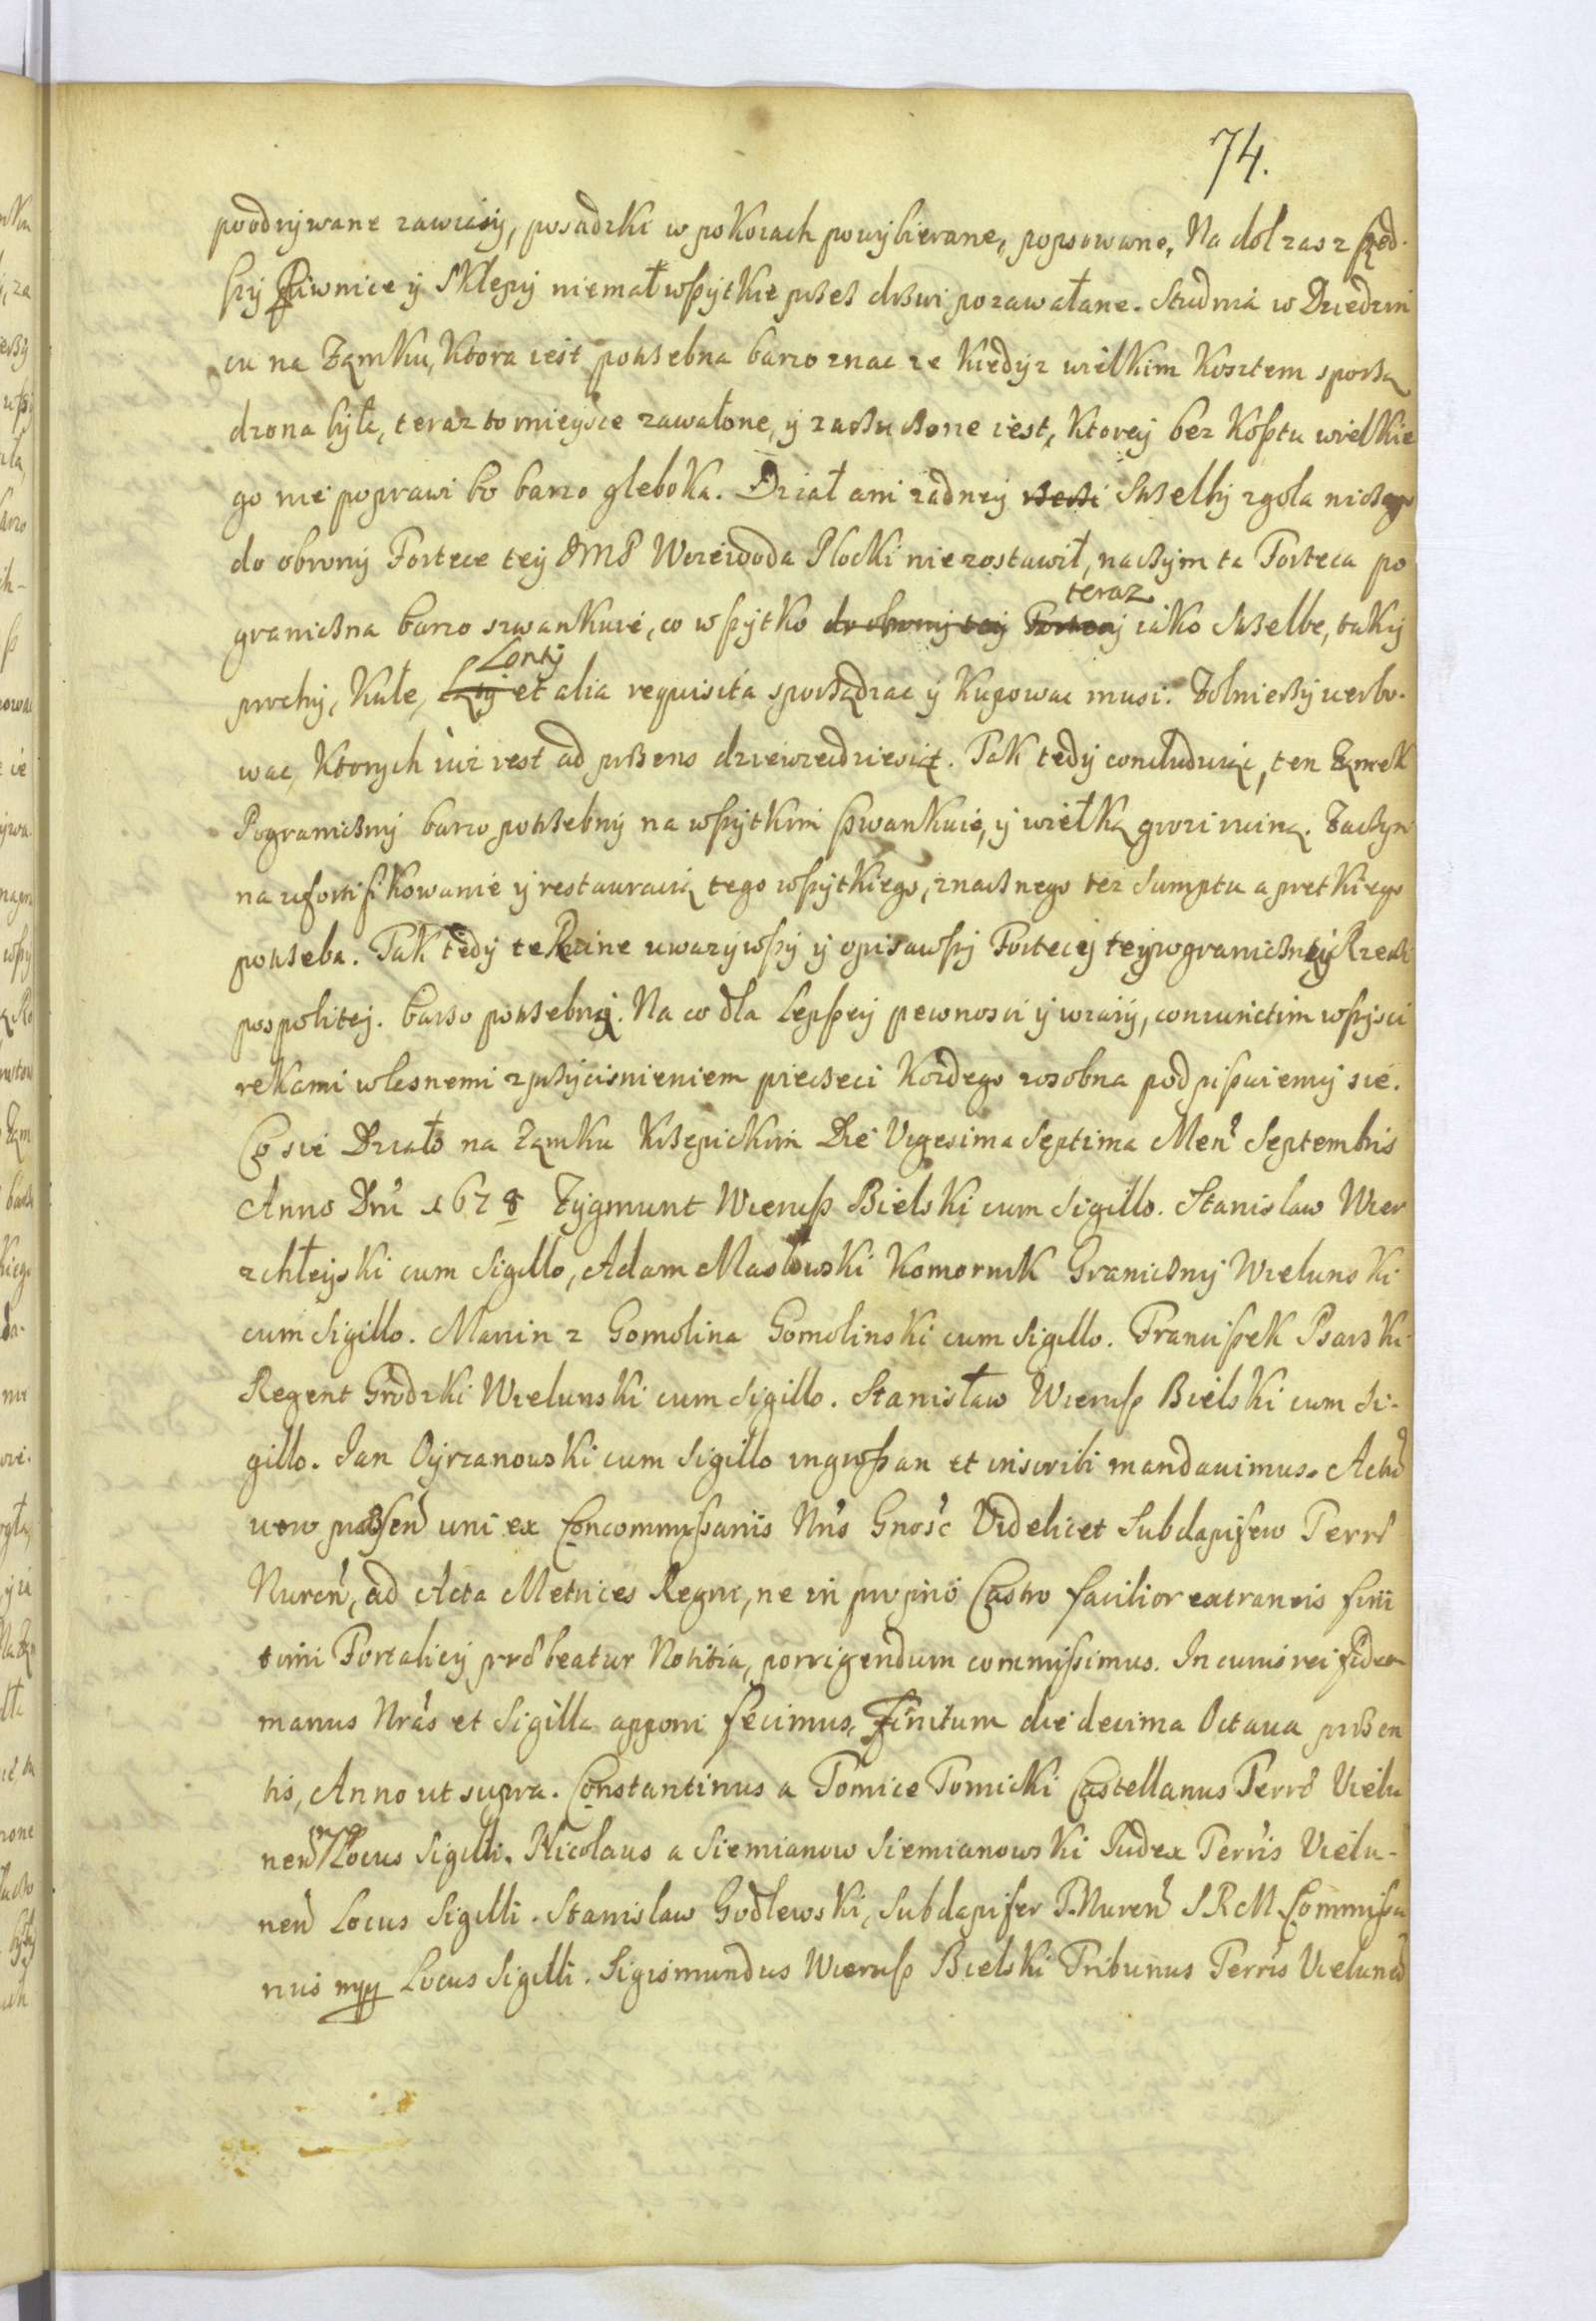 74.
poodrywane zawiasy, posadzki w pokoiach powybierane, popsowane, Na dol zas z szed-
szy Piwnice y Sklepy niemał wszytkie przez drzwi pozawałane. Studnia w Dziedzin
cu na Zamku, Ktora iest potrzebna barzo znac ze kiedyz wielkim Kosztem sporzą
dzona byłe, teraz to mieysce zawalone, y zarzucone iest, Ktorey bez Kosztu wielkie
go nie poprawi bo barzo gleboka. Dział ani zadney Strzelby zgola niczego
do obrony Fortece tey JMP Woiewoda Plocki nie zostawił, naczym ta Forteca po
teraz
graniczna barzo szwankuie, co wszytko do obrony tey Fortecy iako Strzelbe, taky
Lonty
prochy, Kule, et alia requisita sporządzac y Kupowac musi. Zolnierzy werbo-
wac, Ktorych iuz iest ad przens dziewiecdziesiąt. Tak tedy concluduiąc, ten Zamek
Pograniczny barzo potrzebny na wszytkim szwankuie, y wielką grozi ruiną. Zaczym
na ufortifikowanie y restauracią tego wszytkiego, znacznego tez Sumptu a pretkiego
potrzeba. Tak tedy te Ruine uwazywszy y opisawszy Fortecy tey pograniczney Rzeczi
pospolitej. barzo potrzebny. Na co dla Lepszey pewnosci y wiary, coniunctim wszysci
rekami wlasnemi z przycisnieniem pieczeci Kozdego zosobna podpisuiemy sie.
Co sie Działo na Zamku Krzepickim Die Vigesima Septima Men Septembris
Anno Dni 1678 Zygmunt Wierusz Bielski cum Sigillo. Stanislaw Wier
zchleyski cum Sigillo, Adam Maslowski Komornik Graniczny Wielunski
cum Sigillo. Marcin z Gomolina Gomolinski cum Sigillo. Franciszek Psarski
Regent Grodzki Wielunski cum Sigillo. Stanisław Wierusz Bielski cum Si-
gillo. Jan Oyrzanowski cum Sigillo ingrossari et inscribi mandavimus. Actu
vero uni ex Concommissariis Nris Gnosc Videlicet Subdapifero Terrae
Nuren, ad Acta Metrices Regni, ne in proprio Castro facilior extraneis fini
timi Fortalicy praebeatur Notitia, porrigendum commissimus. In cuius rei fidem
manus Nras et Sigilla apponi fecimus, Finitum die decima Octava praesen
tis, Anno ut supra. Constantinus a Tomice Tomicki Castellanus Terrae Vielu
nen Locus Sigilli. Nicolaus a Siemianow Siemianowski Judex Terris Vielu-
nen Locus Sigilli. Stanislaw Godlewski, Subdapifer T. Nuren S R M Commissa
rius mpp Locus Sigilli. Sigismundus Wierusz Bielski Tribunus Terris Vielunen